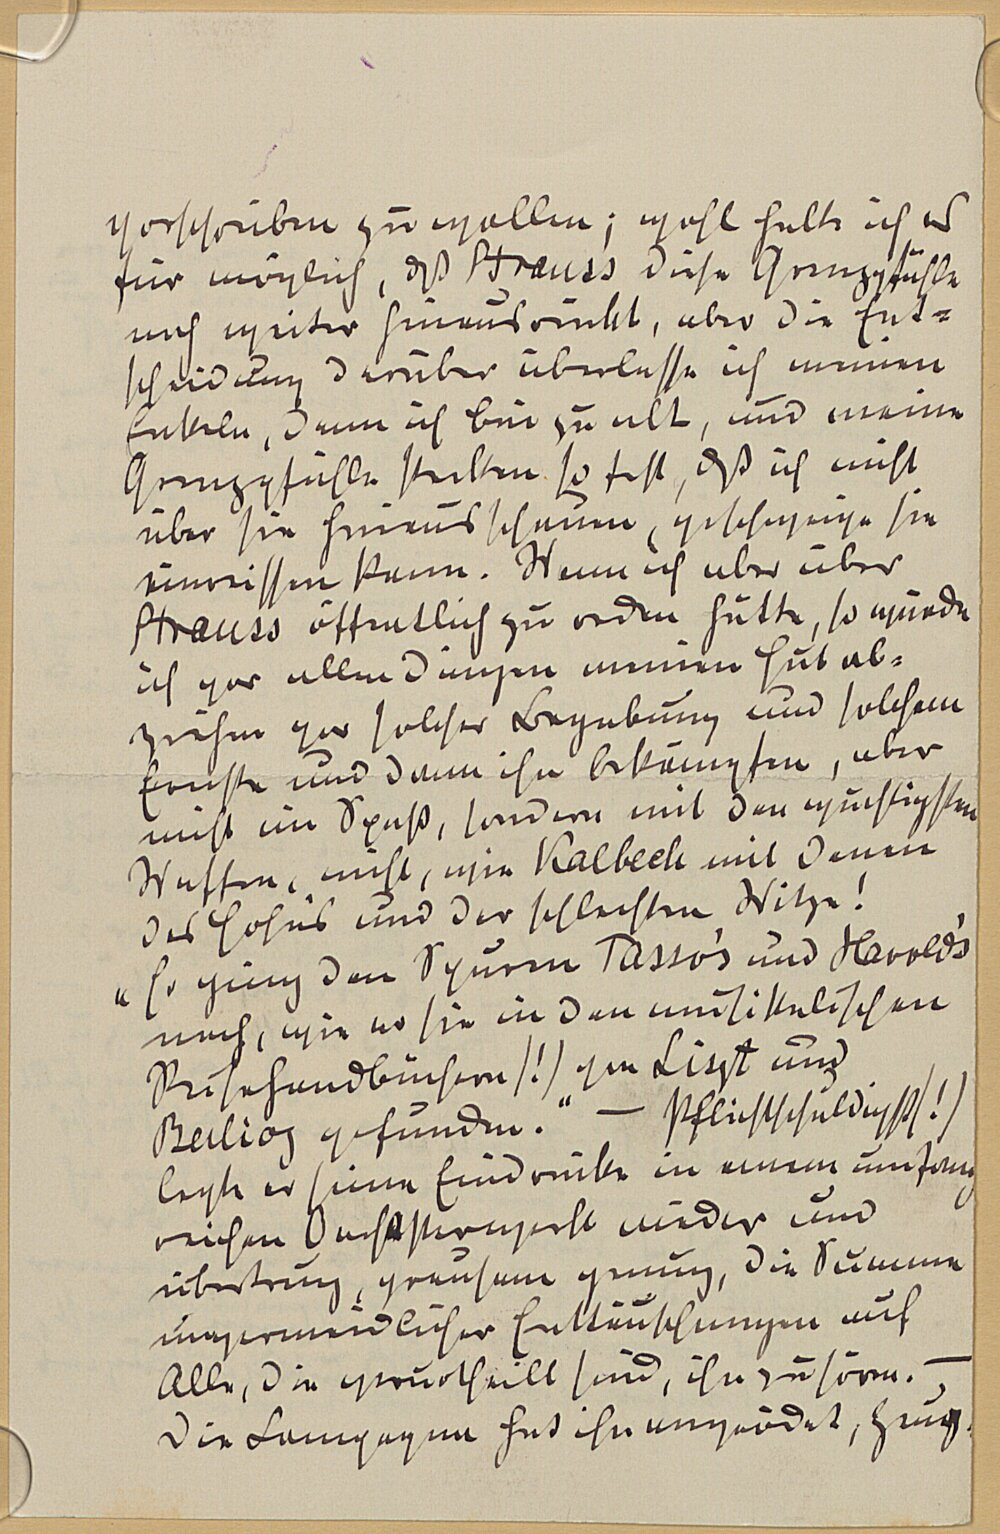 vorschreiben zu wollen; wohl halte ich es
für möglich, daß Strauss diese Grenzpfähle
noch weiter hinausrückt, aber die Ent-
scheidung darüber überlasse ich meinen
Enkeln, denn ich bin zu alt, und meine
Grenzpfähle stecken so fest, daß ich nicht
über sie hinausschauen, geschweige sie
einreissen kann. Wenn ich aber über
Strauss öffentlich zu reden hätte, so würde
ich vor allen Dingen meinen Hut ab-
ziehen vor solcher Begabung und solchem
Ernste und dann ihn bekämpfen, aber
nicht im Spaß, sondern mit den wuchtigsten
Waffen, nicht, wie Kalbeck mit denen
des Hohns und der schlechten Witze!
"Er ging den Spuren Tasso's und Harold's
nach, wie er sie in den musikalischen
Reisehandbüchern (!) von Liszt und
Berlioz gefunden." — Pflichtschuldigst (!)
legte er seine Eindrücke in einem umfang
reichen Orchesterwerke nieder und
übertrug, grausam genug, die Summe
unvermeidlicher Enttäuschungen auf
Alle, die verurtheilt sind, ihn zu hören. —
Die Campagna hat ihn angeödet, Zeug-